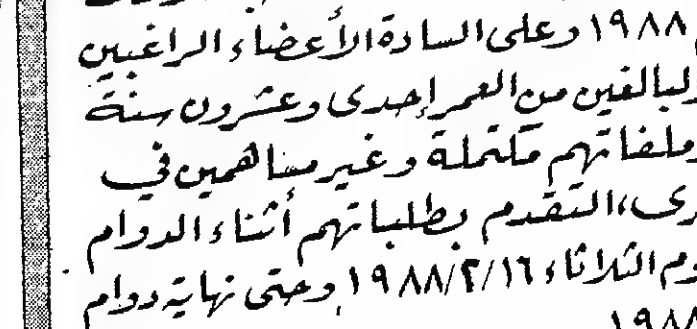 ١٩٨٨ وعلى السادة الأعضاء الراغبين
لبالغين من العمر إحدى وعشرون سنة
وملفاتهم مكتملة وغير مساهمين في
رى، التقدم بطلباتهم أثناء الدوام
وم الثلاثاء ١٩٨٨/٢/١٦ وحتى نهاية دوام
١٩٨٨